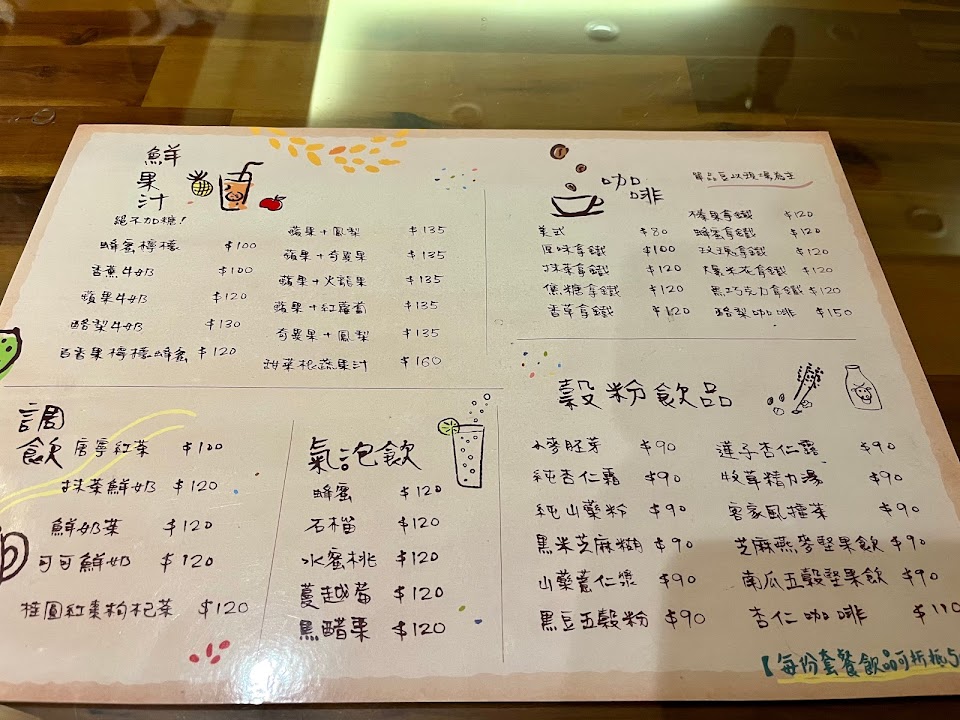 鮮果汁
絕不加糖!
蜂蜜檸檬 $100
香蕉牛奶 $100
蘋果牛奶 $120
酪梨牛奶 $130
百香果檸檬蜂蜜 $120
蘋果+鳳梨 $135
蘋果+奇異果 $135
蘋果+火龍果 $135
蘋果+紅蘿蔔 $135
奇異果+鳳梨 $135
甜菜根蔬果汁 $160
咖啡
單品豆以現場為主
美式 $80
原味拿鐵 $100
抹茶拿鐵 $120
焦糖拿鐵 $120
香草拿鐵 $120
榛果拿鐵 $120
蜂蜜拿鐵 $120
玫瑰拿鐵 $120
爆米花拿鐵 $120
黑巧克力拿鐵 $120
酪梨咖啡 $150
調飲
唐寧紅茶 $100
抹茶鮮奶 $120
鮮奶茶 $120
可可鮮奶 $120
桂圓紅棗枸杞茶 $120
氣泡飲
蜂蜜 $120
石榴 $120
水蜜桃 $120
蔓越莓 $120
黑醋栗 $120
穀粉飲品
小麥胚芽 $90
純杏仁霜 $90
純山藥粉 $90
黑米芝麻糊 $90
山藥薏仁漿 $90
黑豆五穀粉 $90
蓮子杏仁露 $90
牧草精力湯 $90
客家風擂茶 $90
芝麻燕麥堅果飲 $90
南瓜五穀堅果飲 $90
杏仁咖啡 $110
【每份套餐飲品可折抵5